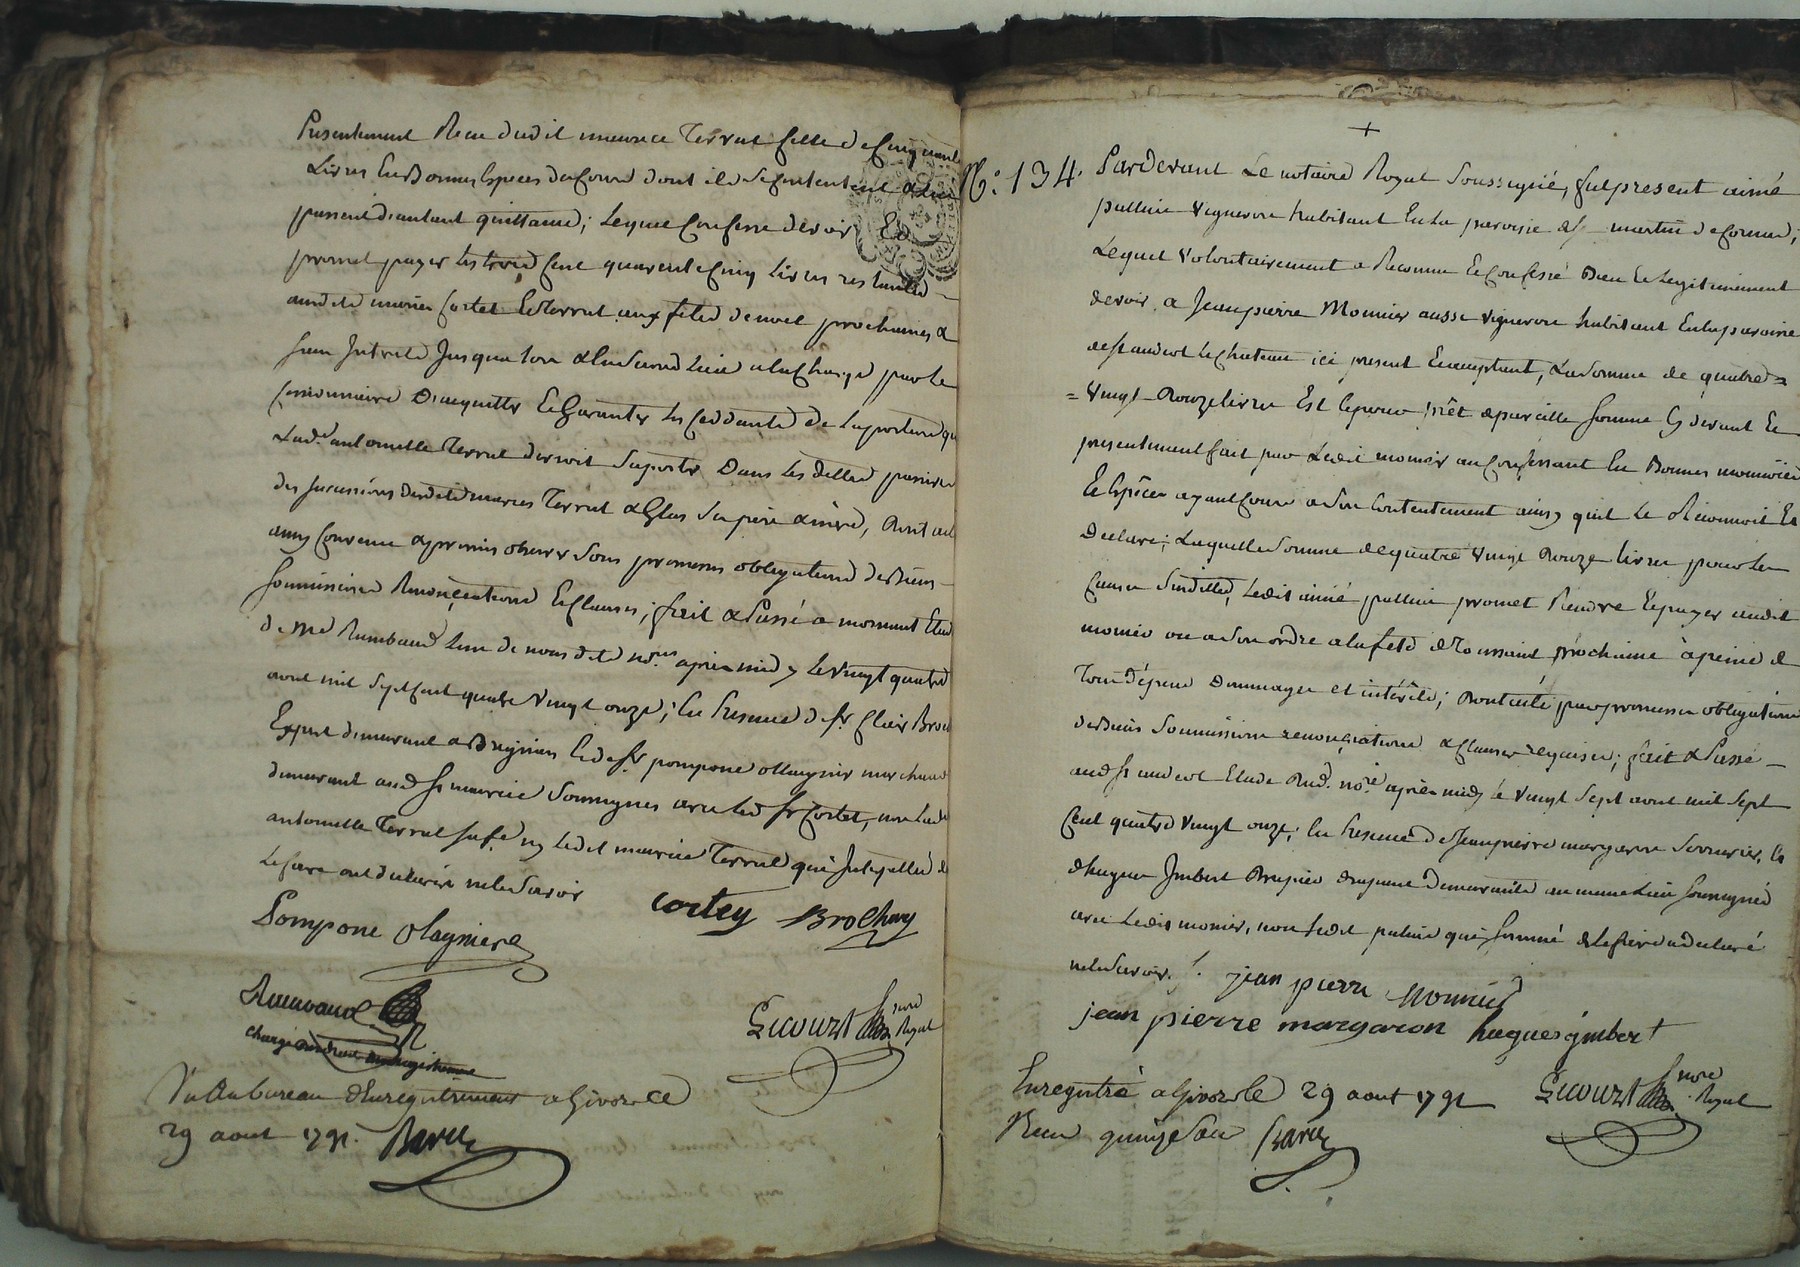 Presentement Receu dudit maurice Terrat celle de Cinq cent
Livres En Bonnes Especes de Cours dont ils se Contentent & les
passent d'autant quittance; lequel Confesse devoir Et
promet payer les trois Cent quarente Cinq Livres restantes
auxdits mariés Cortet Et Terrat aux fetes de noel prochaines &
sans Intrets Jusqu'a lors & En Second Lieu a la Charge par le
Cessionnaire D'acquitter Et Garantir les Ceddants de la portion que
Lad.e antoinette Terrat devoit Suporter Dans les dettes passives
des Successions desdits maries Terrat & Glas Ses père & mère, dont ont
ainsy Convenu & promis observer Sous promesses obligations de Biens
Soumissions Renonciations Et Clauses; fait & Passé a mornant Etude
de Me Rambaud L'un de nous dits no.res après midy Le vingt quatre
aout mil Sept Cent quatre Vingt onze; En Presence de Sr Clair Broch
Expert demeurant a Et de Sr pompone ollagnier marchand
demeurant aud St maurice Soussignés avec led Sr Cortet, non lade
antoinette Terrat Sa fe ny ledit maurice Terrat qui Interpellés de
Le faire ont declarés ne le Savoir
cortey Brochay
Pompone olagniere
Rambaud
Lecourt nore Royal
Vu Au bureau d'Enregistrement a Givors le
29 aout 1791. Barel
+
N.o 134. Pardevant Le notaire Royal Soussigné, fut present aimé
pallin Vigneron habitant En la paroisse de St martin de Cornas;
Lequel Volontairement a Reconnu Et Confessé Bien Et Legitimement
devoir a Jeanpierre Monnier aussi Vigneron habitant En la paroisse
de St andeol Le Chateau ici present Et acceptant, La Somme de quatre=
=Vingt Douze livres Et Ce pour prêt de pareille Somme Cy devant Et
presentement fait par Ledit monier au Confessant En Bonnes monnoies
Et Espèces ayant Cours a Son Contentement ainsy qu'il Le Reconnoit Et
Declare; Laquelle Somme de quatre Vingt Douze livres pour les
Causes Susdittes, Ledit aimé pallin promet Rendre Et payer audit
monier ou a Son ordre a la fete de Toussaint prochaine à peine de
Tous dépens Dommages et intérêts; Dont acte par promesses obligations
de Biens Soumissions renonciations & Clauses requises; fait & Passé
aud St andeol Etude Dud. no.re après midy le Vingt Sept aout mil Sept
Cent quatre Vingt onze; En Presence de Jeanpierre margaron Serrurier, Et
d'hugues Imbert Drapier drapant demeurants au meme Lieu Soussignés
avec Ledit monier, non ledit palin qui Sommé de Le faire a declaré
ne le Savoir.
jean pierre Monnier
jean pierre margaron hugues jmbert
Lecourt nore Royal
Enregistré a Givors le 29 aout 1791
Reçu quinze Sols Barel